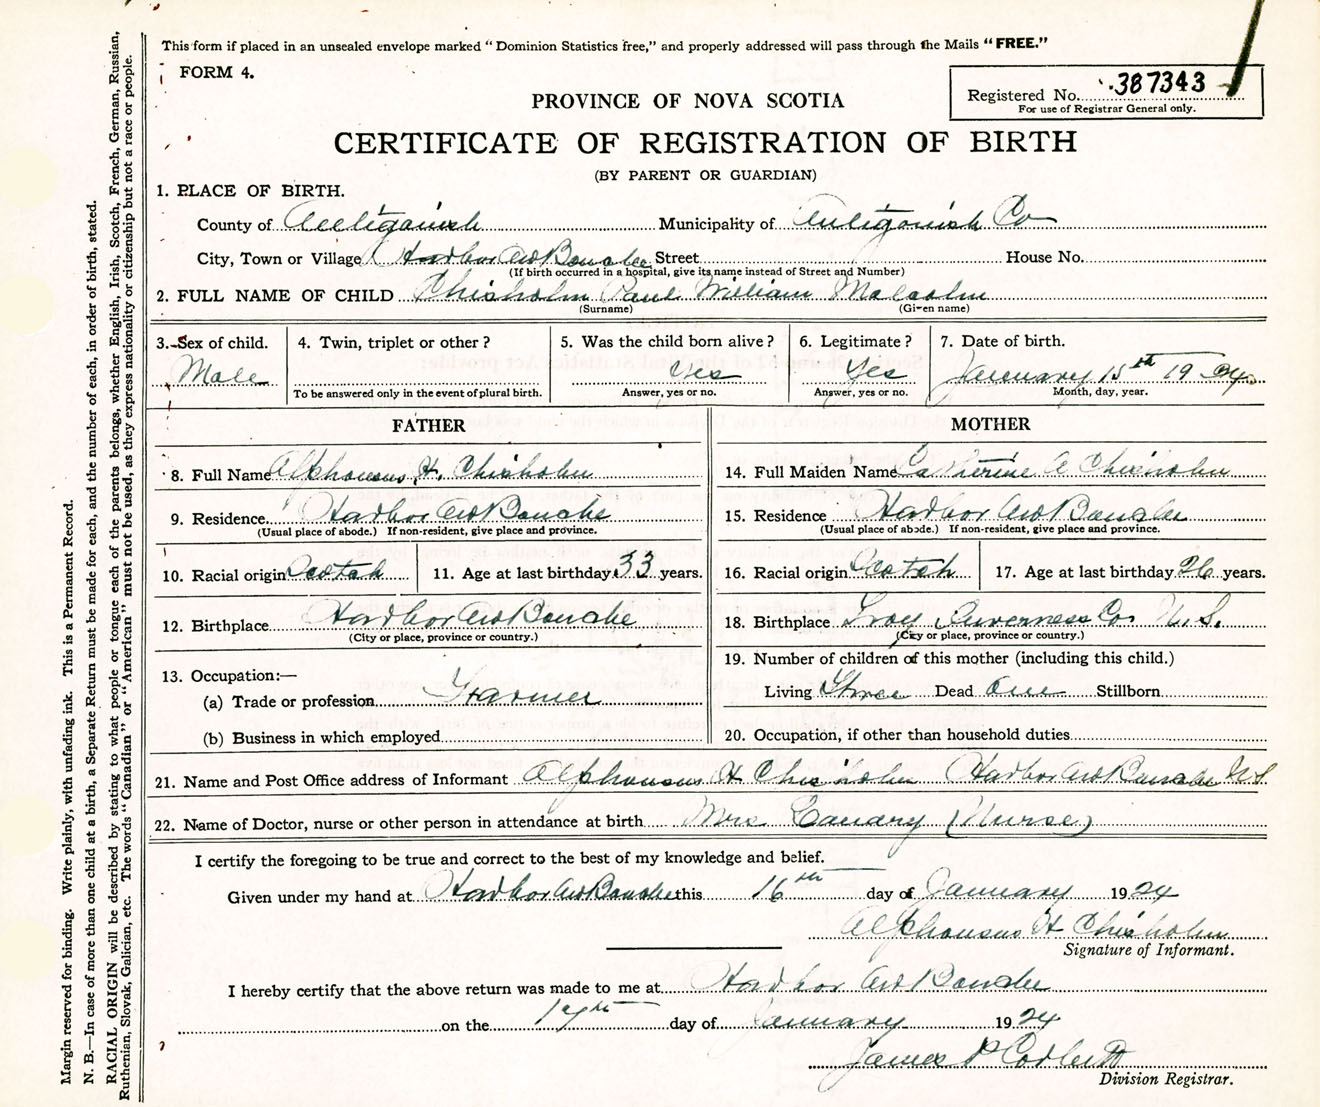 This form if placed in an unsealed envelope marked "Dominion Statistics free," and properly addressed will pass through the Mails "FREE."
FORM 4.
Registered No. 387343
For use of Registrar General only.
PROVINCE OF NOVA SCOTIA
CERTIFICATE OF REGISTRATION OF BIRTH
(BY PARENT OR GUARDIAN)
1. PLACE OF BIRTH.
County of Antigonish Municipality of Antigonish Co
City, Town or Village Harbor Au Bouche Street House No.
(If birth occurred in a hospital, give its name instead of Street and Number)
2. FULL NAME OF CHILD Chisholm Paul William Malcolm
(Surname) (Given name)
3. Sex of child. 4. Twin, triplet or other? 5. Was the child born alive? 6. Legitimate? 7. Date of birth.
Male Yes Yes January 15th 1924
To be answered only in the event of plural birth. Answer, yes or no. Answer, yes or no. Month, day, year.
FATHER
8. Full Name Alphonsus H. Chisholm
9. Residence Harbor Au Bouche
(Usual place of abode.) If non-resident, give place and province.
10. Racial origin Scotch 11. Age at last birthday 33 years.
12. Birthplace Harbor Au Bouche
(City or place, province or country.)
13. Occupation:—
(a) Trade or profession Farmer
(b) Business in which employed
MOTHER
14. Full Maiden Name Catherine A Chisholm
15. Residence Harbor Au Bouche
(Usual place of abode.) If non-resident, give place and province.
16. Racial origin Scotch 17. Age at last birthday 26 years.
18. Birthplace Troy Inverness Co. N. S.
(City or place, province or country.)
19. Number of children of this mother (including this child.)
Living Three Dead One Stillborn
20. Occupation, if other than household duties
21. Name and Post Office address of Informant Alphonsus H Chisholm Harbor Au Bouche N.S.
22. Name of Doctor, nurse or other person in attendance at birth Mrs Canary (Nurse)
I certify the foregoing to be true and correct to the best of my knowledge and belief.
Given under my hand at Harbor Au Bouche this 16th day of January 1924
Alphonsus H Chisholm
Signature of Informant.
I hereby certify that the above return was made to me at Harbor Au Bouche
on the 17th day of January 1924
James P Corbett
Division Registrar.
Margin reserved for binding. Write plainly, with unfading ink. This is a Permanent Record.
N. B.—In case of more than one child at a birth, a Separate Return must be made for each, and the number of each, in order of birth, stated.
RACIAL ORIGIN will be described by stating to what people or tongue each of the parents belongs, whether English, Irish, Scotch, French, German, Russian,
Ruthenian, Slovak, Galician, etc. The words "Canadian" or "American" must not be used, as they express nationality or citizenship but not a race or people.